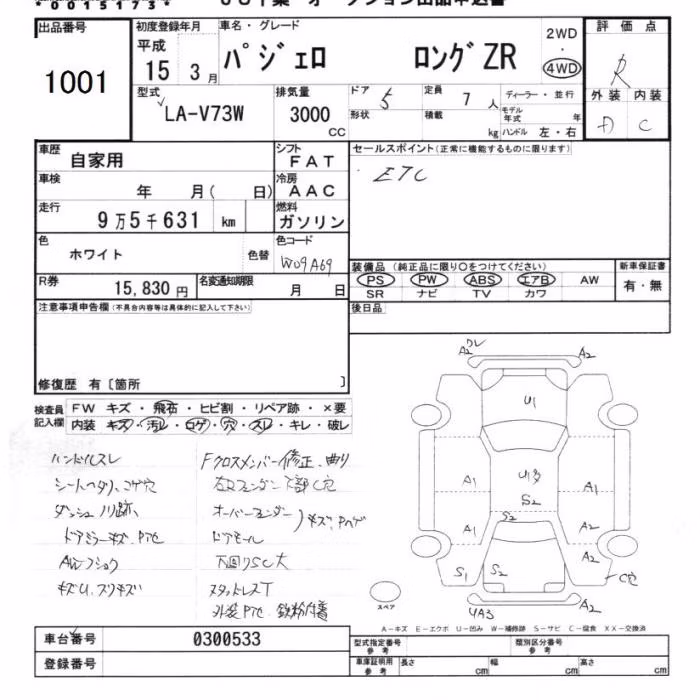 *00151473*
出品番号 初度登録年月 車名・グレード 2WD 評価点
平成 ・
1001 15 3月 パジェロ ロングZR 4WD R
型式 排気量 ドア 定員 ディーラー・並行 外装 内装
LA-V73W 3000 cc 5 7人 モデル年式 年 D C
形状 積載 kg ハンドル 左・右
車歴 シフト セールスポイント(正常に機能するものに限ります)
自家用 FAT
車検 冷房 ETC
年 月( 日) AAC
走行 燃料
9万5千631 km ガソリン
色 色コード
ホワイト 色替 W09A69
装備品 (純正品に限り○をつけてください) 新車保証書
R券 名変通知期限 PS PW ABS エアB AW 有・無
15,830円 月 日 SR ナビ TV カワ
注意事項申告欄(不具合内容等は具体的に記入して下さい) 後日品
修復歴 有〔箇所 〕
検査員 FW キズ・飛石・ヒビ割・リペア跡・×要
記入欄 内装 キズ・汚レ・コゲ・穴・スレ・キレ・破レ
ハンドルスレ Fクロスメンバー修正、曲り
シートヘタリ、コゲ穴
ダッシュノリ跡、 オーバーフェンダー キズ、Pハゲ
ドアミラーキズ、Pアセ ドアモール
下回りSC大
キズU、スリキズ スタッドレスT
外装Pアセ 鉄粉付着
A2 ワレ A2
U1
A1 U1多 A1
S2
A1 S2 A2
A2
S1 S2 C穴
スペア UA3 A2
A-キズ E-エクボ U-凹み W-補修跡 S-サビ C-腐食 XX-交換済
車台番号 0300533 型式指定番号 参考 類別区分番号 参考
登録番号 車庫証明用 参考 長さ cm 幅 cm 高さ cm